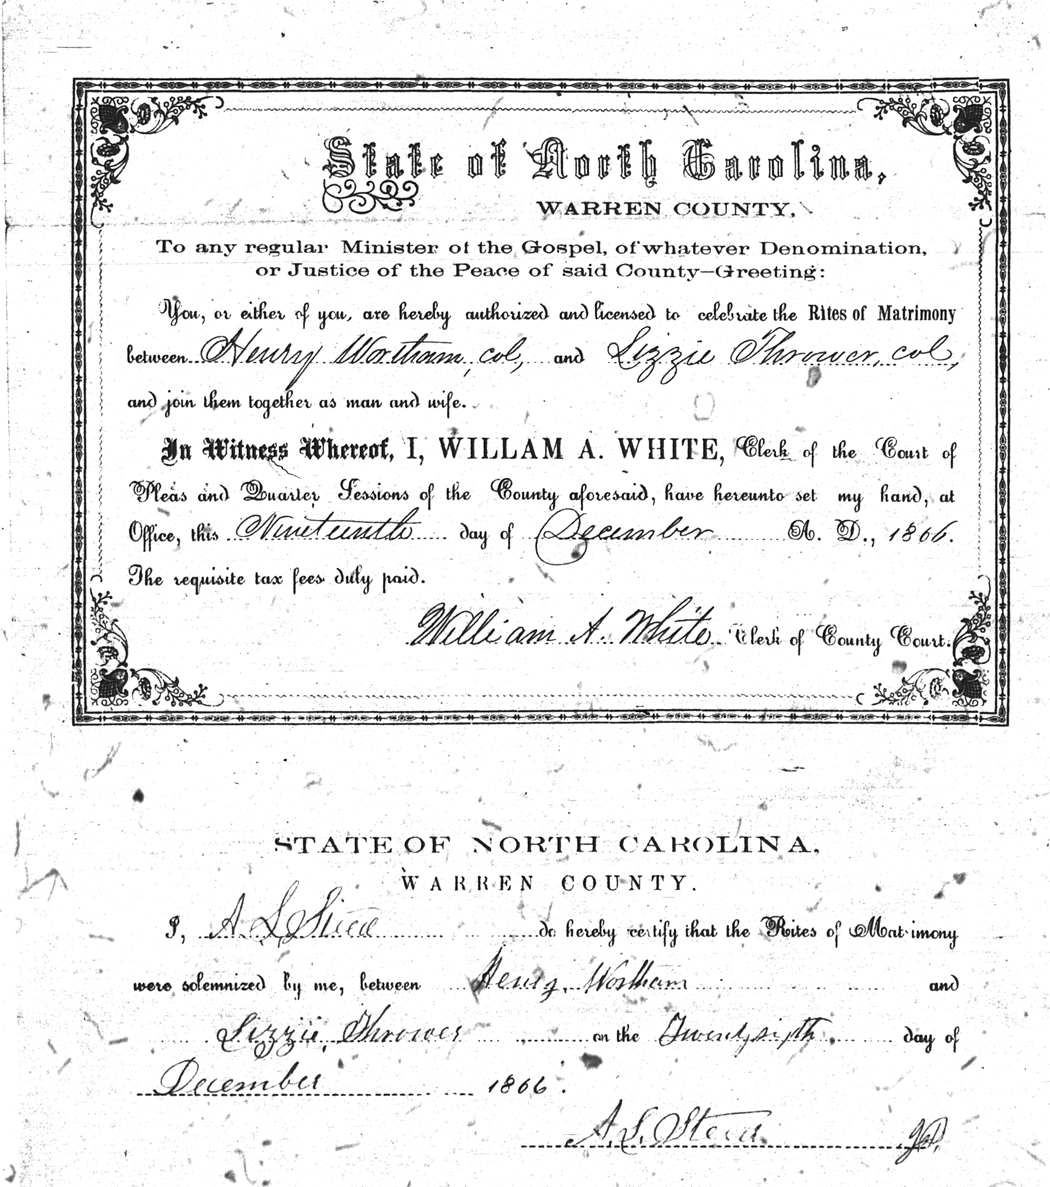 State of North Carolina,
WARREN COUNTY.
To any regular Minister of the Gospel, of whatever Denomination,
or Justice of the Peace of said County—Greeting:
You, or either of you, are hereby authorized and licensed to celebrate the Rites of Matrimony
between Henry Wortham, col, and Lizzie Thrower, col,
and join them together as man and wife.
In Witness Whereof, I, WILLAM A. WHITE, Clerk of the Court of
Pleas and Quarter Sessions of the County aforesaid, have hereunto set my hand, at
Office, this Nineteenth day of December A. D., 1866.
The requisite tax fees duly paid.
William A. White Clerk of County Court.
STATE OF NORTH CAROLINA,
WARREN COUNTY.
I, A. L. Steed do hereby certify that the Rites of Matrimony
were solemnized by me, between Henry Wortham and
Lizzie Thrower on the Twenty sixth day of
December 1866.
A. L. Steed J.P.